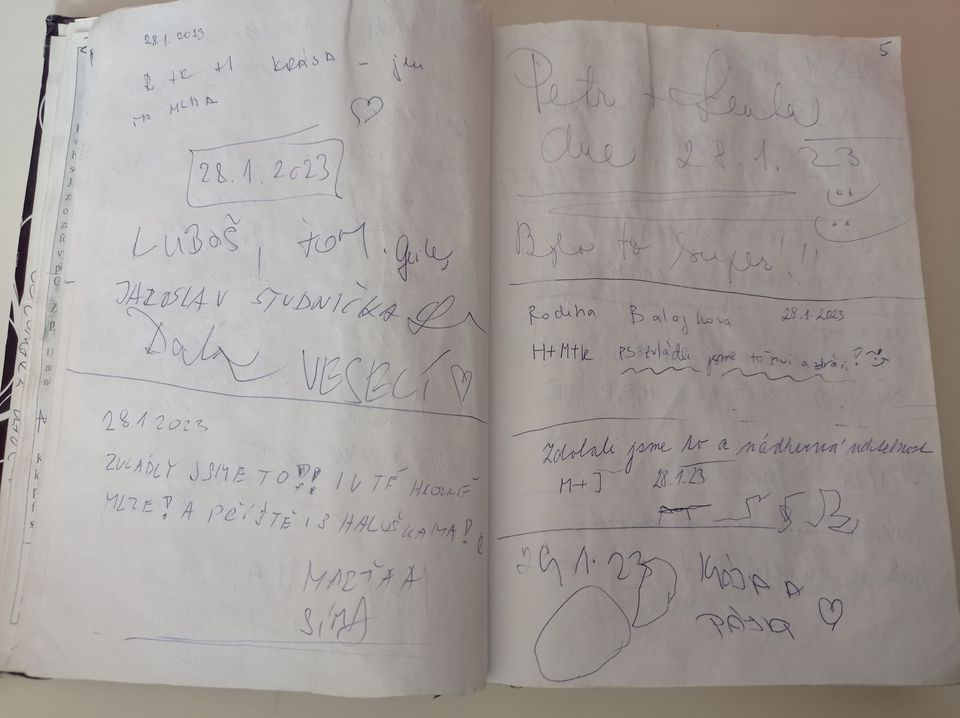 28.1.2023
R + K + M KRÁSA - jen
ta MLHA
28.1.2023
LUBOŠ, TOM.
JAROSLAV STUDNIČKA
VESELÍ
28 1 2023
ZVLÁDLY JSME TO!!! I V TÉ HROZNÉ
MLZE! A PŘÍŠTĚ I S HALUŠKAMA!
MARŤA A
SÍMA
5
Petr + Lenka
dne 28.1. 23
Bylo to super!!!
Rodina Balajkova 28.1.2023
H+M+K PS: zvládli jsme to živi a zdrávi?
Zdolali jsme to a nádherná viditelnost
M+J 28.1.23
29 1. 23 KÁJA A
PÁJA